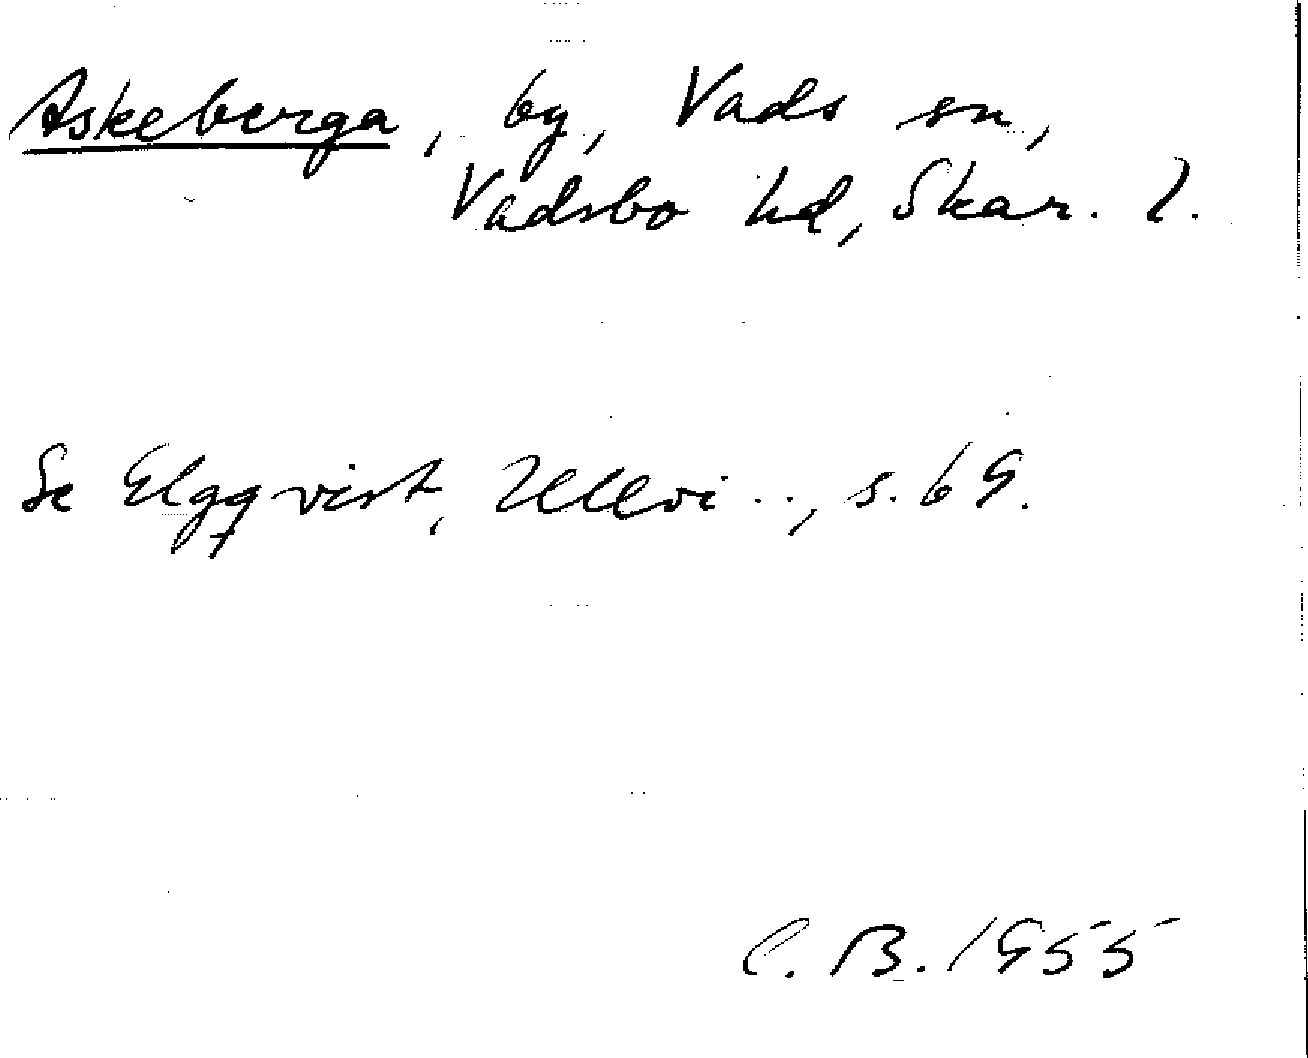 Askeberga, by, Vads sn,
Vadsbo hd, Skar. l.
Se Elgqvist, Ullvi .., s. 69.
C. B. 1955